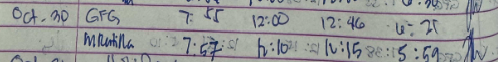 Oct. 30 GFG 7:55 12:00 12:46
7:57 12:10 12:15 5:59